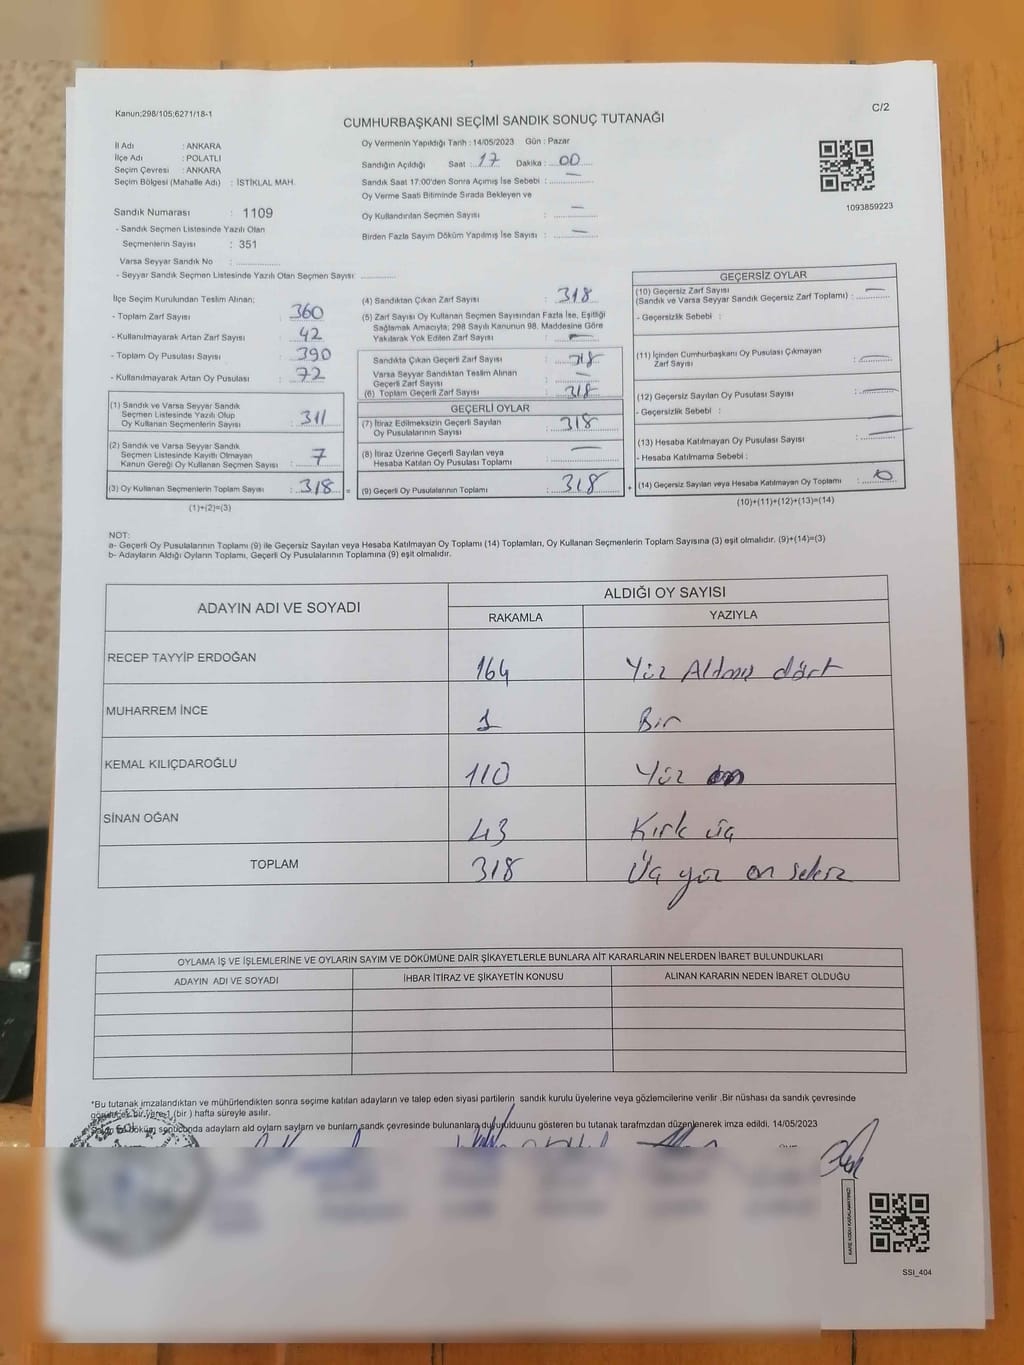 Kanun:298/105;6271/18-1
C/2
CUMHURBAŞKANI SEÇİMİ SANDIK SONUÇ TUTANAĞI
İl Adı : ANKARA
İlçe Adı : POLATLI
Seçim Çevresi : ANKARA
Seçim Bölgesi (Mahalle Adı) : İSTİKLAL MAH.
Sandık Numarası : 1109
- Sandık Seçmen Listesinde Yazılı Olan
Seçmenlerin Sayısı : 351
Varsa Seyyar Sandık No :
- Seyyar Sandık Seçmen Listesinde Yazılı Olan Seçmen Sayısı:
Oy Vermenin Yapıldığı Tarih : 14/05/2023 Gün : Pazar
Sandığın Açıldığı Saat : 17 Dakika : 00
Sandık Saat 17:00'den Sonra Açılmış İse Sebebi : —
Oy Verme Saati Bitiminde Sırada Bekleyen ve
Oy Kullandırılan Seçmen Sayısı : —
Birden Fazla Sayım Döküm Yapılmış İse Sayısı : —
1093859223
İlçe Seçim Kurulundan Teslim Alınan;
- Toplam Zarf Sayısı : 360
- Kullanılmayarak Artan Zarf Sayısı : 42
- Toplam Oy Pusulası Sayısı : 390
- Kullanılmayarak Artan Oy Pusulası : 72
(1) Sandık ve Varsa Seyyar Sandık
Seçmen Listesinde Yazılı Olup
Oy Kullanan Seçmenlerin Sayısı : 311
(2) Sandık ve Varsa Seyyar Sandık
Seçmen Listesinde Kayıtlı Olmayan
Kanun Gereği Oy Kullanan Seçmen Sayısı : 7
(3) Oy Kullanan Seçmenlerin Toplam Sayısı : 318 =
(1)+(2)=(3)
(4) Sandıktan Çıkan Zarf Sayısı : 318
(5) Zarf Sayısı Oy Kullanan Seçmen Sayısından Fazla İse, Eşitliği
Sağlamak Amacıyla; 298 Sayılı Kanunun 98. Maddesine Göre
Yakılarak Yok Edilen Zarf Sayısı : —
Sandıkta Çıkan Geçerli Zarf Sayısı : 318
Varsa Seyyar Sandıktan Teslim Alınan
Geçerli Zarf Sayısı : —
(6) Toplam Geçerli Zarf Sayısı : 318
GEÇERLİ OYLAR
(7) İtiraz Edilmeksizin Geçerli Sayılan
Oy Pusulalarının Sayısı : 318
(8) İtiraz Üzerine Geçerli Sayılan veya
Hesaba Katılan Oy Pusulası Toplamı : —
(9) Geçerli Oy Pusulalarının Toplamı : 318 +
GEÇERSİZ OYLAR
(10) Geçersiz Zarf Sayısı
(Sandık ve Varsa Seyyar Sandık Geçersiz Zarf Toplamı) : —
- Geçersizlik Sebebi :
(11) İçinden Cumhurbaşkanı Oy Pusulası Çıkmayan
Zarf Sayısı : —
(12) Geçersiz Sayılan Oy Pusulası Sayısı : —
- Geçersizlik Sebebi :
(13) Hesaba Katılmayan Oy Pusulası Sayısı : —
- Hesaba Katılmama Sebebi :
(14) Geçersiz Sayılan veya Hesaba Katılmayan Oy Toplamı : 0
(10)+(11)+(12)+(13)=(14)
NOT:
a- Geçerli Oy Pusulalarının Toplamı (9) ile Geçersiz Sayılan veya Hesaba Katılmayan Oy Toplamı (14) Toplamları, Oy Kullanan Seçmenlerin Toplam Sayısına (3) eşit olmalıdır. (9)+(14)=(3)
b- Adayların Aldığı Oyların Toplamı, Geçerli Oy Pusulalarının Toplamına (9) eşit olmalıdır.
ADAYIN ADI VE SOYADI
ALDIĞI OY SAYISI
RAKAMLA YAZIYLA
RECEP TAYYİP ERDOĞAN 164 Yüz Altmış dört
MUHARREM İNCE 1 Bir
KEMAL KILIÇDAROĞLU 110 Yüz on
SİNAN OĞAN 43 Kırk üç
TOPLAM 318 Üç yüz on sekiz
OYLAMA İŞ VE İŞLEMLERİNE VE OYLARIN SAYIM VE DÖKÜMÜNE DAİR ŞİKAYETLERLE BUNLARA AİT KARARLARIN NELERDEN İBARET BULUNDUKLARI
ADAYIN ADI VE SOYADI İHBAR İTİRAZ VE ŞİKAYETİN KONUSU ALINAN KARARIN NEDEN İBARET OLDUĞU
*Bu tutanak imzalandıktan ve mühürlendikten sonra seçime katılan adayların ve talep eden siyasi partilerin sandık kurulu üyelerine veya gözlemcilerine verilir .Bir nüshası da sandık çevresinde
görülecek bir yere 1 (bir ) hafta süreyle asılır.
döküm sonucunda adayların ald oyların sayların ve bunların sandık çevresinde bulunanlara duyurulduunu gösteren bu tutanak tarafmzdan düzenlenerek imza edildi. 14/05/2023
SSI_404